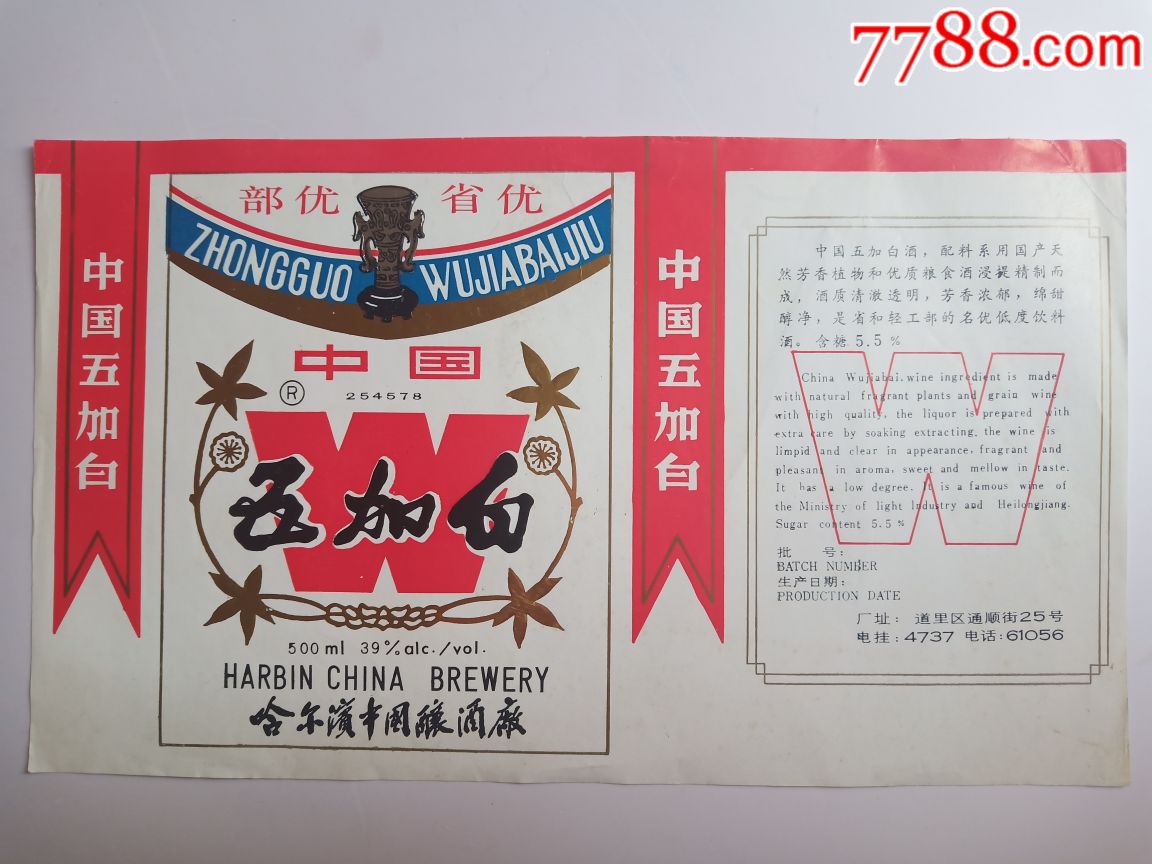 7788.com
部优 省优
ZHONGGUO WUJIABAIJIU
中国五加白
中国
® 254578
W
五加白
500ml 39%alc./vol.
HARBIN CHINA BREWERY
哈尔滨中国酿酒厂
中国五加白
中国五加白酒，配料系用国产天
然芳香植物和优质粮食酒浸提精制而
成，酒质清澈透明，芳香浓郁，绵甜
醇净，是省和轻工部的名优低度饮料
酒。含糖5.5%
W
China Wujiabai.wine ingredient is made
with natural fragrant plants and grain wine
with high quality, the liquor is prepared with
extra care by soaking extracting, the wine is
limpid and clear in appearance, fragrant and
pleasant in aroma, sweet and mellow in taste.
It has a low degree. It is a famous wine of
the Ministry of light Industry and Heilongjiang.
Sugar content 5.5%
批 号：
BATCH NUMBER
生产日期：
PRODUCTION DATE
厂址：道里区通顺街25号
电挂：4737 电话：61056